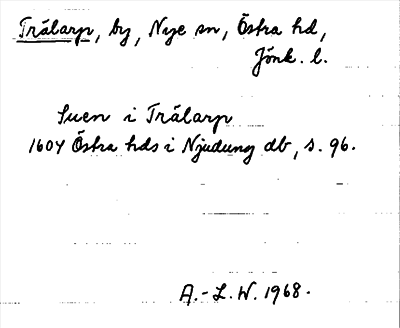 Trälarp, by, Nye sn, Östra hd,
Jönk. l.
Suen i Trälarp
1604 Östra hds i Njudung db, s. 96.
A.-L.W. 1968.